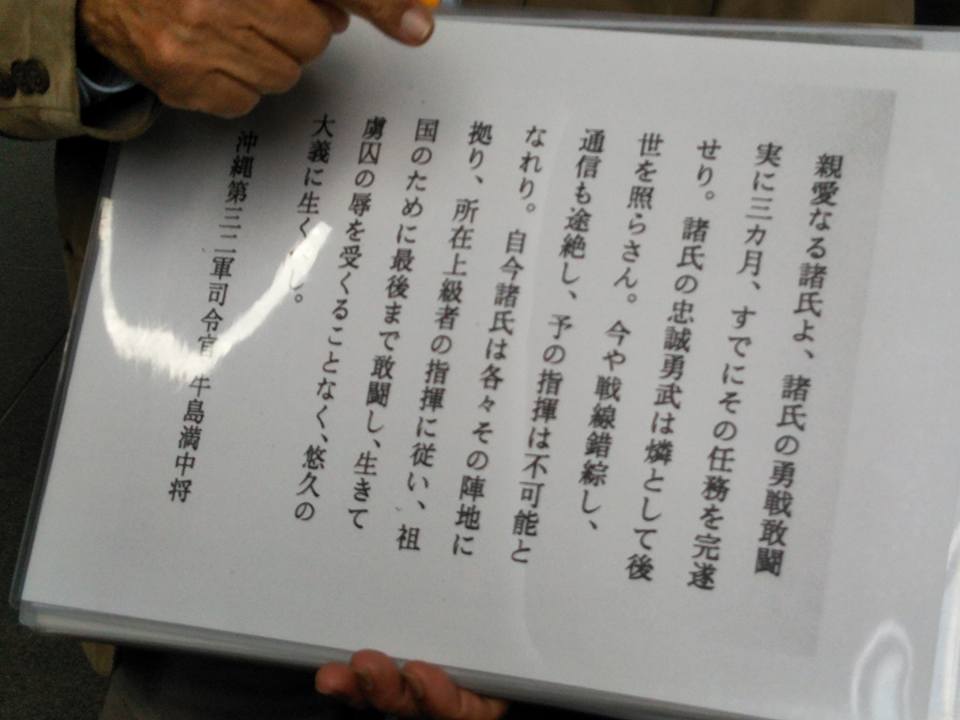 親愛なる諸氏よ、諸氏の勇戦敢闘
実に三カ月、すでにその任務を完遂
せり。諸氏の忠誠勇武は燐として後
世を照らさん。今や戦線錯綜し、
通信も途絶し、予の指揮は不可能と
なれり。自今諸氏は各々その陣地に
拠り、所在上級者の指揮に従い、祖
国のために最後まで敢闘し、生きて
虜囚の辱を受くることなく、悠久の
大義に生くべし。
沖縄第三二軍司令官 牛島満中将